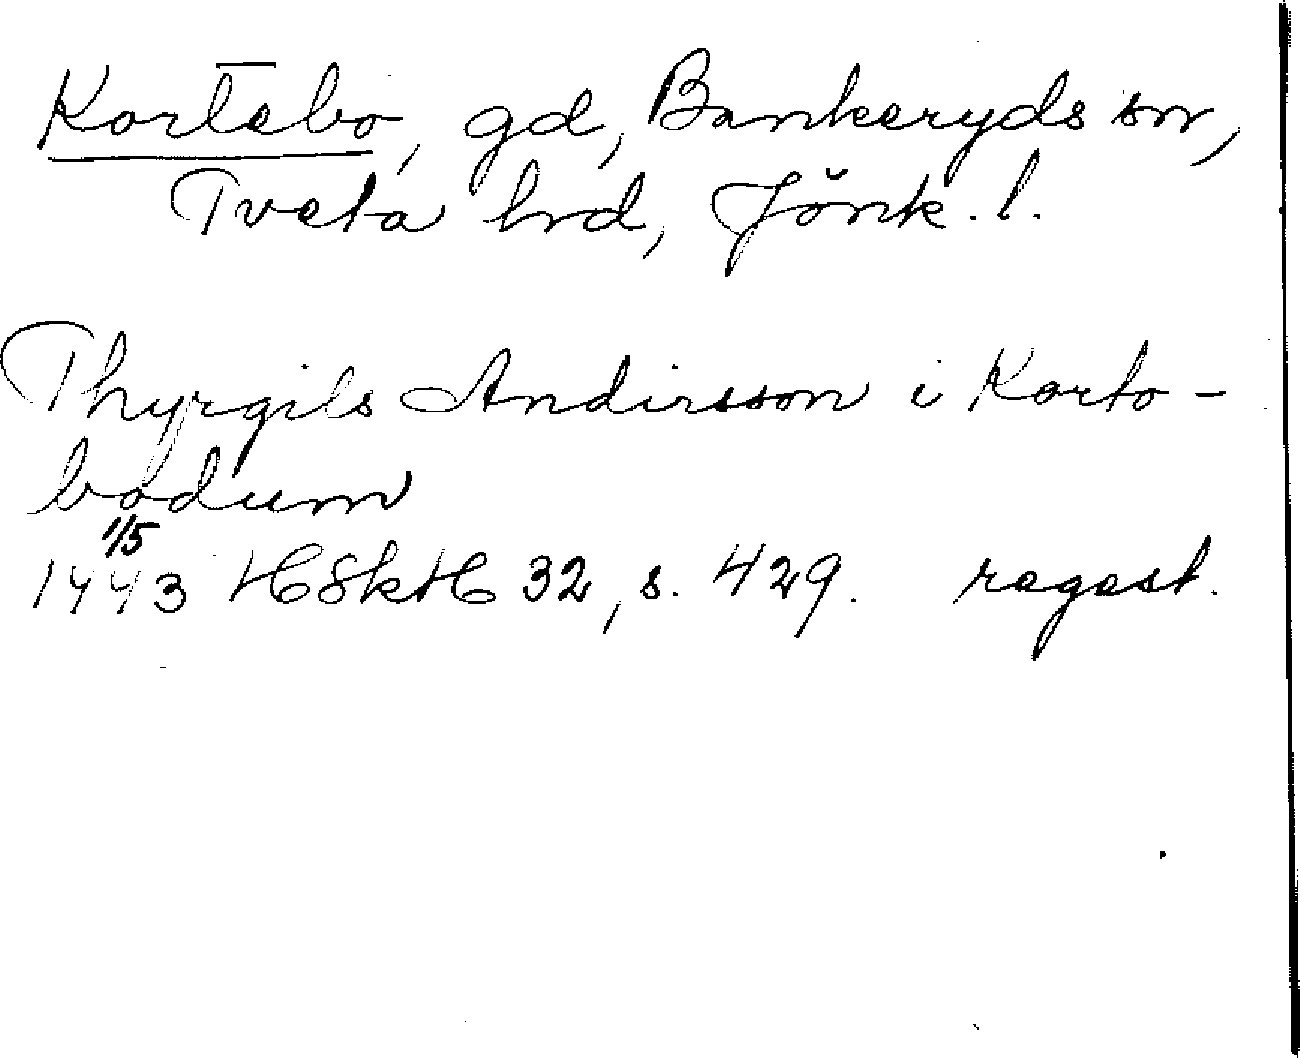 Kortebo, gd, Bankeryds sn,
Tveta hrd, Jönk. l.
Thyrgils Andirsson i Korto-
bodum
1/5
1443 HSkH 32, s. 429. regest.